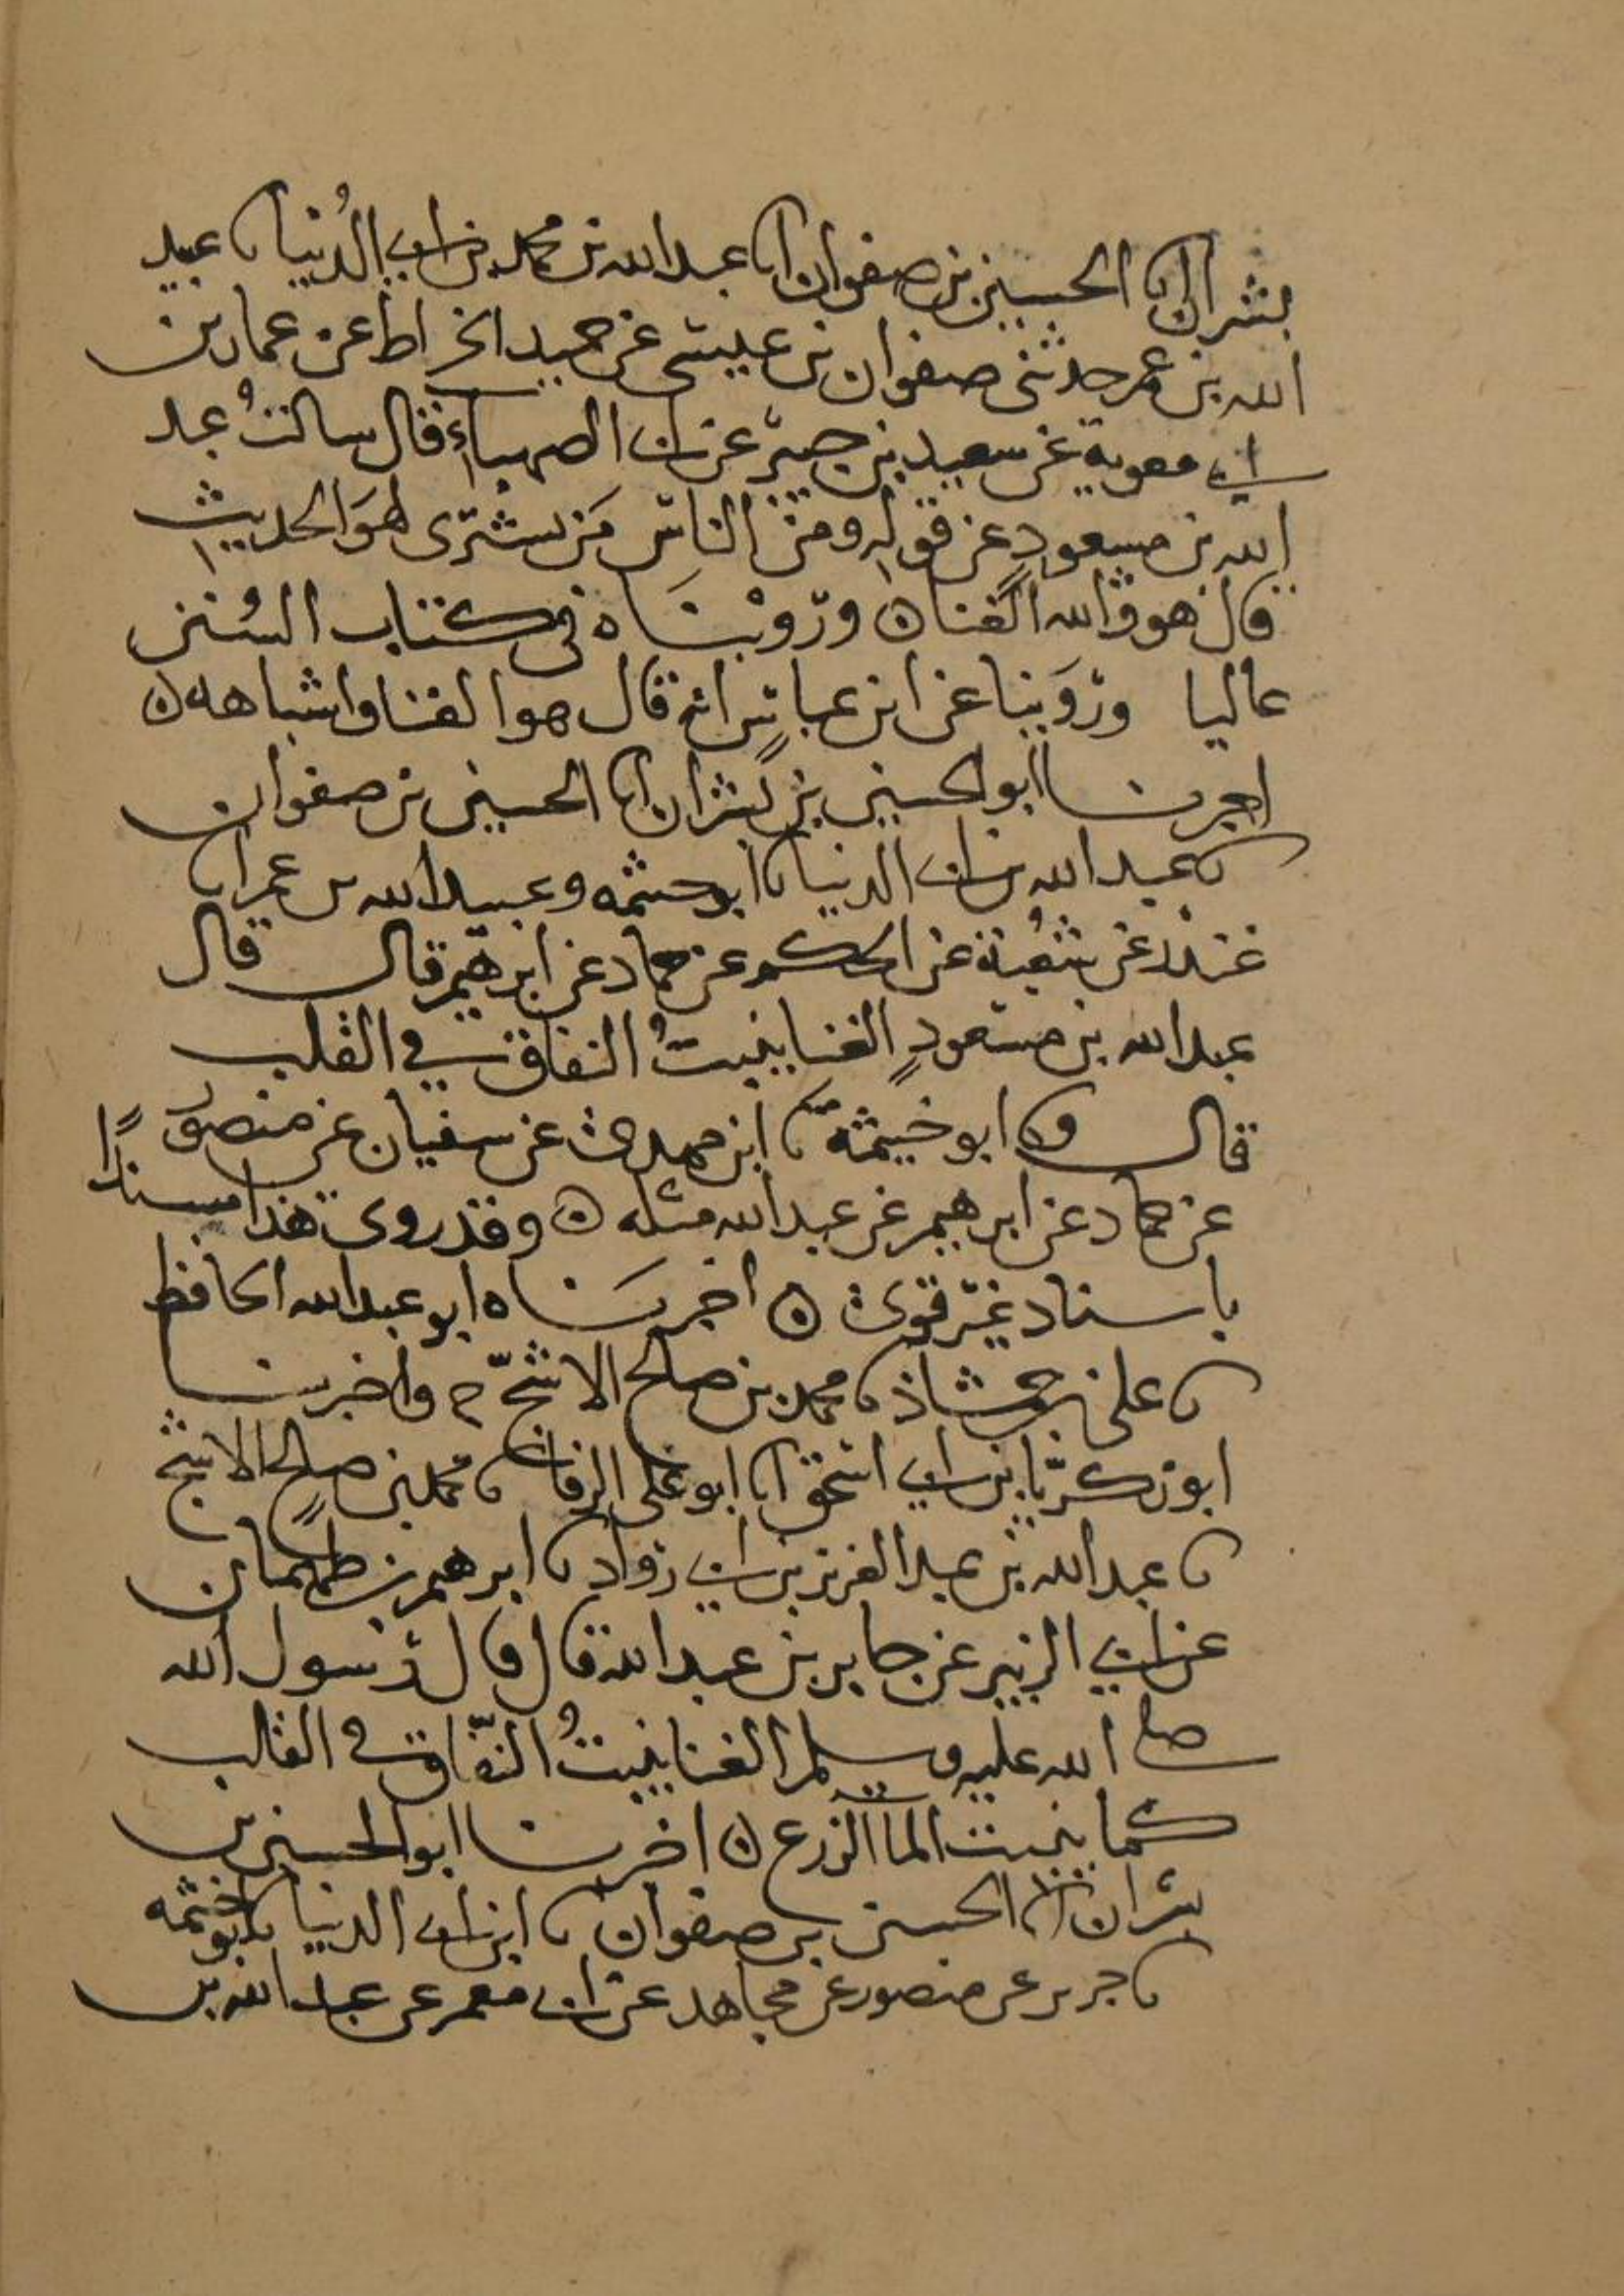 بشران انا الحسين بن صفوان انا عبد الله بن محمد بن ابى الدُنيا نا عبيد
الله بن عمر حدثنى صفوان بن عيسى عن حميد الخراط عن عمار بن
ابى معوية عن سعيد بن جبير عن ابى الصهباء قال سالتُ عبد
الله بن مسعودٍ عن قوله ومن الناس مَن يشترى لهوَ الحديث
قال هو والله الغنا ه ورُوّيْنَاه فى كتاب السُنن
عاليا ورُوّينا عن ابن عباسٍ انه قال هو الغنا واشباهه ه
اخبرنا ابو الحسين بن بشران انا الحسين بن صفوان
نا عبد الله بن ابى الدنيا نا ابو خيثمه وعبيد الله بن عمر نا
غندر عن شُعبة عن الحكم عن حماد عن ابرهيم قال قال
عبد الله بن مسعودٍ الغنا ينبتُ النفاق في القلب
قال ونا ابو خيثمة نا ابن مهدى عن سفيان عن منصور
عن حماد عن ابرهيم عن عبد الله مثله ه وقد روى هذا مسندًا
باسناد غير قوى ه اخبرنَاه ابو عبد الله الحافظ
نا على بن حمشاذ نا محمد بن صالح الاشجّ ح واخبرنا
ابو زكريّا بن ابي اسحق انا ابو على الرفا نا محمد بن صالحٍ الاشج
نا عبد الله بن عبد العزيز بن ابي رواد نا ابرهيم بن طهمان
عن ابي الزبير عن جابر بن عبد الله قال قال رسول الله
صلى الله عليه وسلم الغنا ينبتُ النّفاق في القلب
كما ينبت الما الزرع ه اخبرنا ابو الحسين بن
بشران انا الحسين بن صفوان نا ابن ابى الدنيا نا ابو خيثمه
نا جرير عن منصور عن مجاهد عن ابى معمر عن عبد الله بن